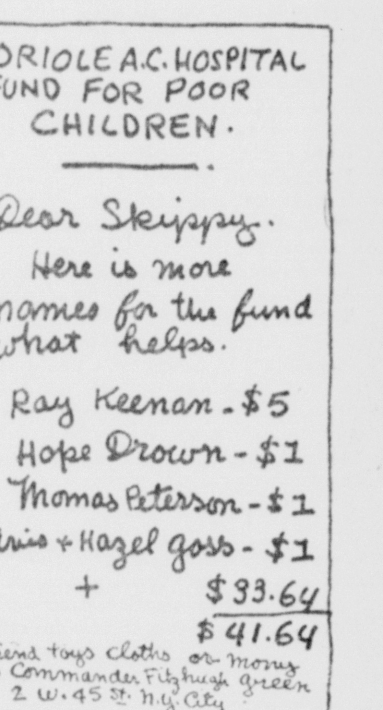 ORIOLE A.C. HOSPITAL
FUND FOR POOR
CHILDREN.
Dear Skippy.
Here is more
names for the fund
what helps.
Ray Keenan - $5
Hope Drown - $1
Thomas Peterson - $1
+ Hazel Goss - $1
+ $33.64
$41.64
send toys cloths or mony
Commander Fitzhugh Green
2 W. 45 St. N.Y. City